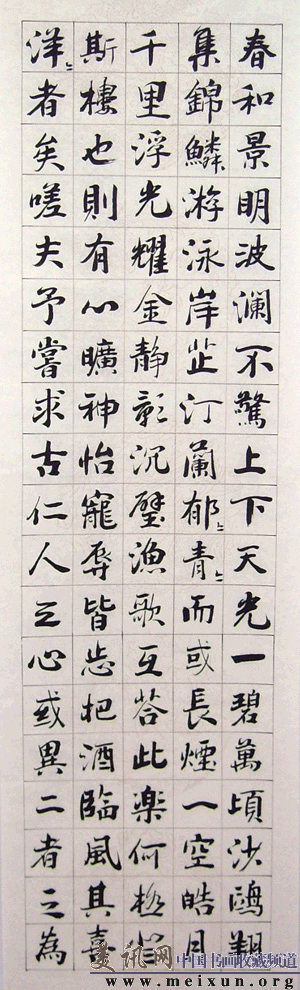 春和景明波澜不驚上下天光一碧萬頃沙鷗翔
集錦鱗游泳岸芷汀蘭郁〻青〻而或長煙一空皓月
千里浮光耀金静影沉璧漁歌互答此楽何極
斯樓也則有心曠神怡寵辱皆忘把酒臨風其喜
洋〻者矣嗟夫予嘗求古仁人之心或異二者之為
美讯网 中国书画收藏频道
www.meixun.org